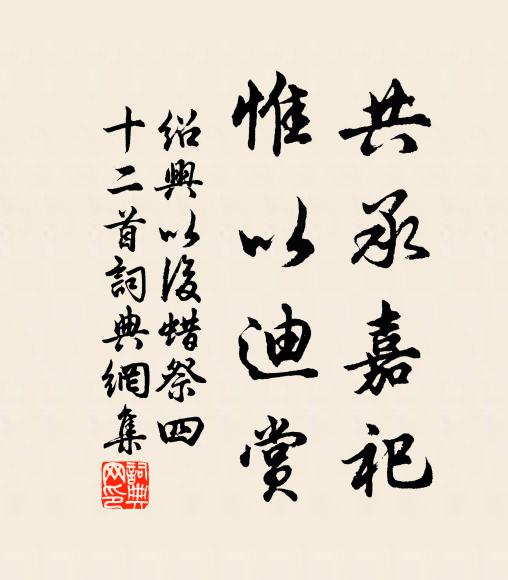 共承嘉祀
惟以迪赏
绍興以後蜡祭四
十二首詞典網集
詞典网印